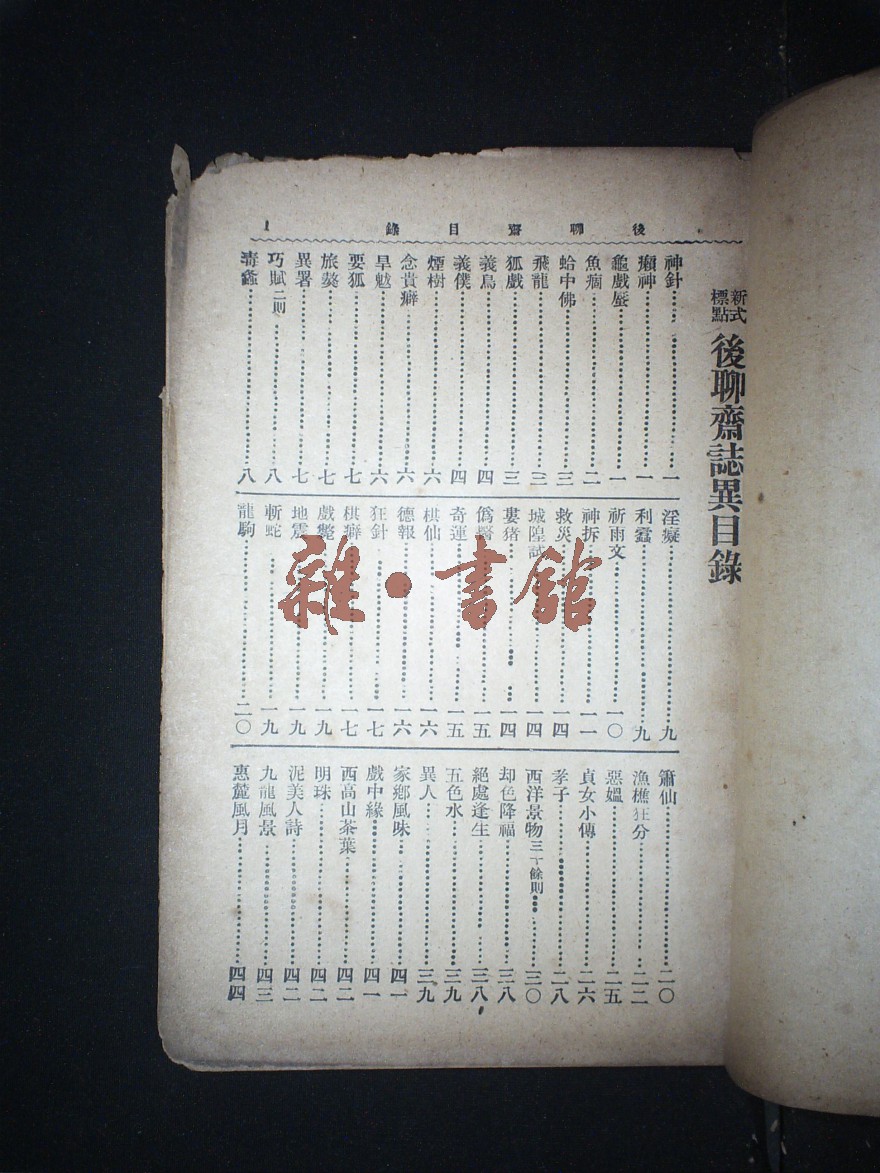 後聊齋目錄 1
新式標點 後聊齋誌異目錄
神針 一
瀨神 一
龜戲 一
魚 二
蛤中佛 三
飛龍 三
狐戲 三
義鳥 四
義僕 四
煙樹 六
念貴癖 六
旱魃 六
要狐 七
旅獒 七
異署 七
巧賦二則 八
毒蠡 八
淫癡 九
利蠹 九
祈雨文 一〇
神拆 一一
救災 一四
城隍試 一四
婁豬 一四
僞醫 一五
奇運 一五
棋仙 一六
德報 一六
狂針 一七
棋癖 一七
戲鱉 一九
地震 一九
斬蛇 一九
龍駒 二〇
簫仙 二〇
漁樵狂分 二二
惡媼 二五
貞女小傳 二六
孝子 二八
西洋景物三十餘則 三〇
却色降福 三八
絕處逢生 三八
五色水 三九
異人 三九
家鄉風味 四一
戲中緣 四一
西高山茶葉 四二
明珠 四二
泥美人詩 四二
九龍風景 四三
惠麓風月 四四
雜·書館